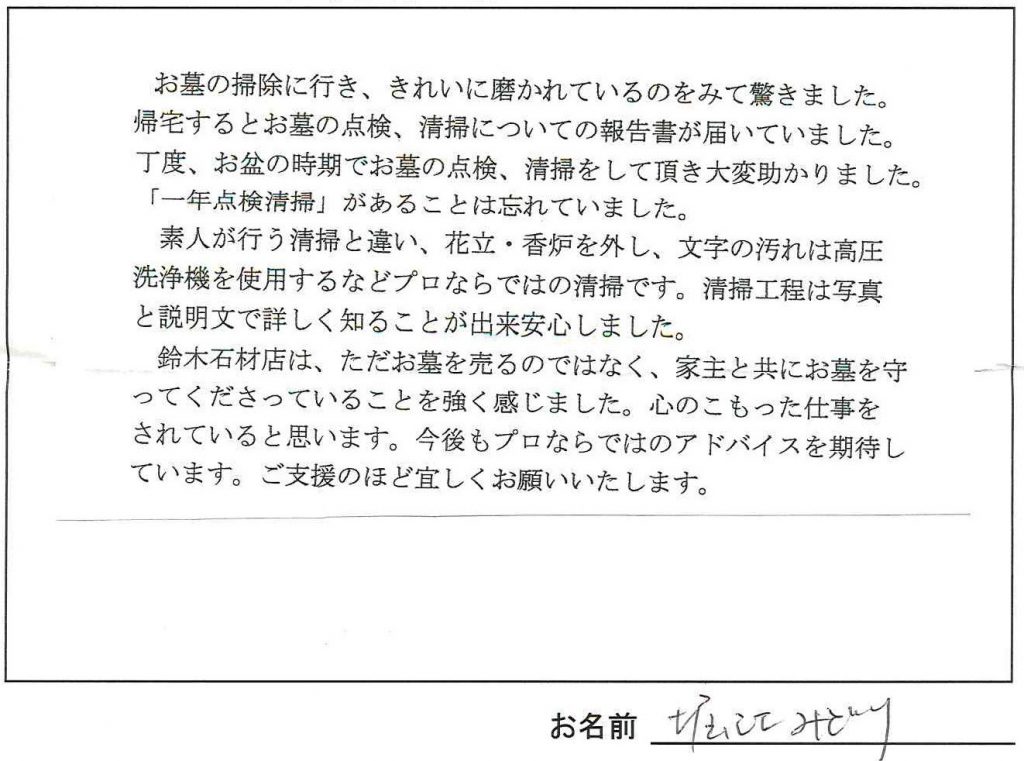 お墓の掃除に行き、きれいに磨かれているのをみて驚きました。
帰宅するとお墓の点検、清掃についての報告書が届いていました。
丁度、お盆の時期でお墓の点検、清掃をして頂き大変助かりました。
「一年点検清掃」があることは忘れていました。
素人が行う清掃と違い、花立・香炉を外し、文字の汚れは高圧
洗浄機を使用するなどプロならではの清掃です。清掃工程は写真
と説明文で詳しく知ることが出来安心しました。
鈴木石材店は、ただお墓を売るのではなく、家主と共にお墓を守
ってくださっていることを強く感じました。心のこもった仕事を
されていると思います。今後もプロならではのアドバイスを期待し
ています。ご支援のほど宜しくお願いいたします。
お名前 堀江みどり